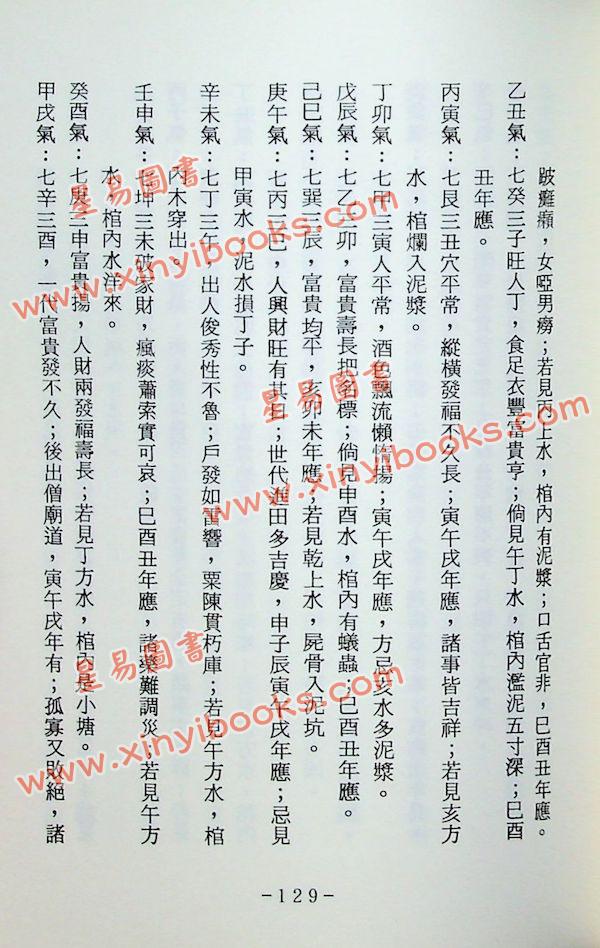 跛癱癩，女啞男癆；若見丙上水，棺內有泥漿；口舌官非，巳酉丑年應。
乙丑氣：七癸三子旺人丁，食足衣豐富貴亨；倘見午丁水，棺內濫泥五寸深；巳酉
丑年應。
丙寅氣：七艮三丑穴平常，縱橫發福不久長；寅午戌年應，諸事皆吉祥；若見亥方
水，棺爛入泥漿。
丁卯氣：七甲三寅人平常，酒色飄流懶惰揚；寅午戌年應，方忌亥水多泥漿。
戊辰氣：七乙三卯，富貴壽長把名標；倘見申酉水，棺內有蟻蟲；巳酉丑年應。
己巳氣：七巽三辰，富貴均平，亥卯未年應；若見乾上水，屍骨入泥坑。
庚午氣：七丙三巳，人興財旺有其日；世代進田多吉慶，申子辰寅午戌年應；忌見
甲寅水，泥水損丁子。
辛未氣：七丁三午，出人俊秀性不魯；戶發如雷響，粟陳貫朽庫；若見午方水，棺
內木穿出。
壬申氣：七坤三未破家財，瘋痰蕭索實可哀；巳酉丑年應，諸藥難調災；若見午方
水，棺內水洋來。
癸酉氣：七庚三申富貴揚，人財兩發福壽長；若見丁方水，棺內是小塘。
甲戌氣：七辛三酉，一代富貴發不久；後出僧廟道，寅午戌年有；孤寡又敗絕，諸
-129-
星易圖書
www.xinyibooks.com
星易圖書
www.xinyibooks.com
星易圖書
www.xinyibooks.com